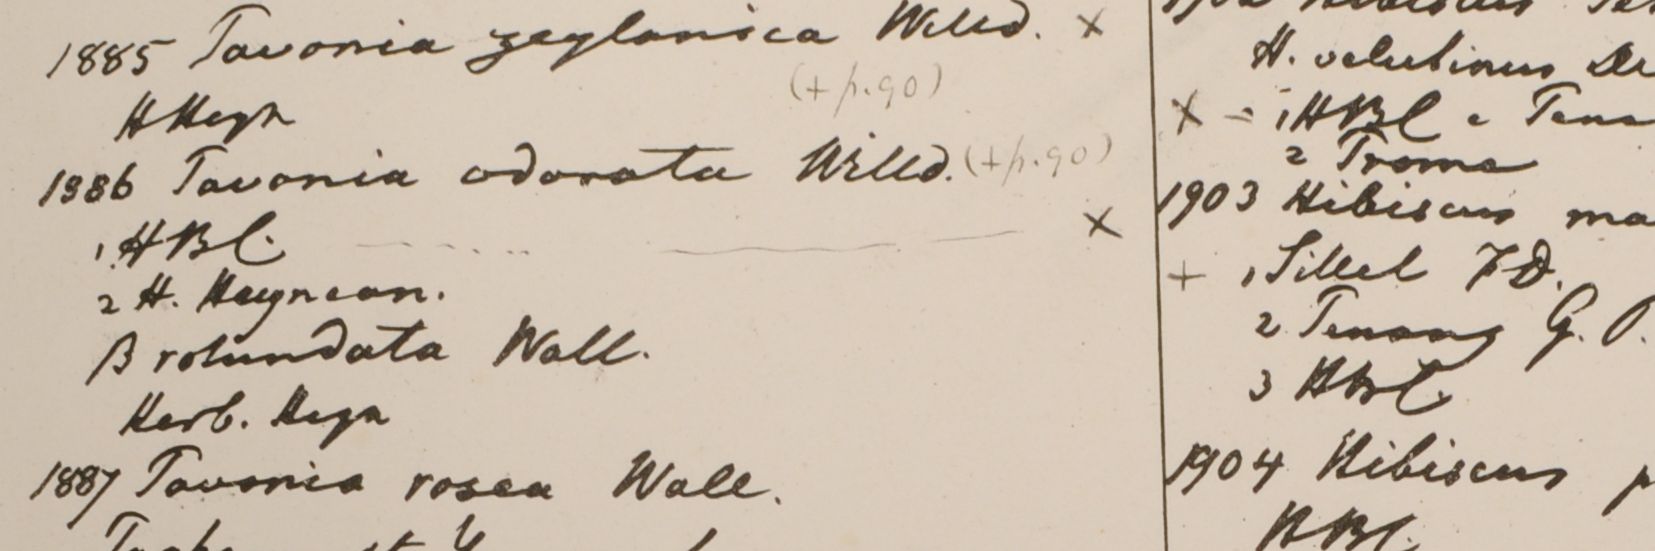 1885 Pavonia zeylanica Willd. x
(+ p. 90)
H Heyn
1886 Pavonia odorata Willd. (+ p. 90)
1. HBC. x
2 H. Heynean.
B rotundata Wall.
Herb. Heyn
1887 Pavonia rosea Wall.
H. velutinus
x - 1 HBC e
2 Prome
1903 Hibiscus ma
+ 1, Sillet FD.
2 Penang G. P.
3 HBC.
1904 Hibiscus p
HBC.